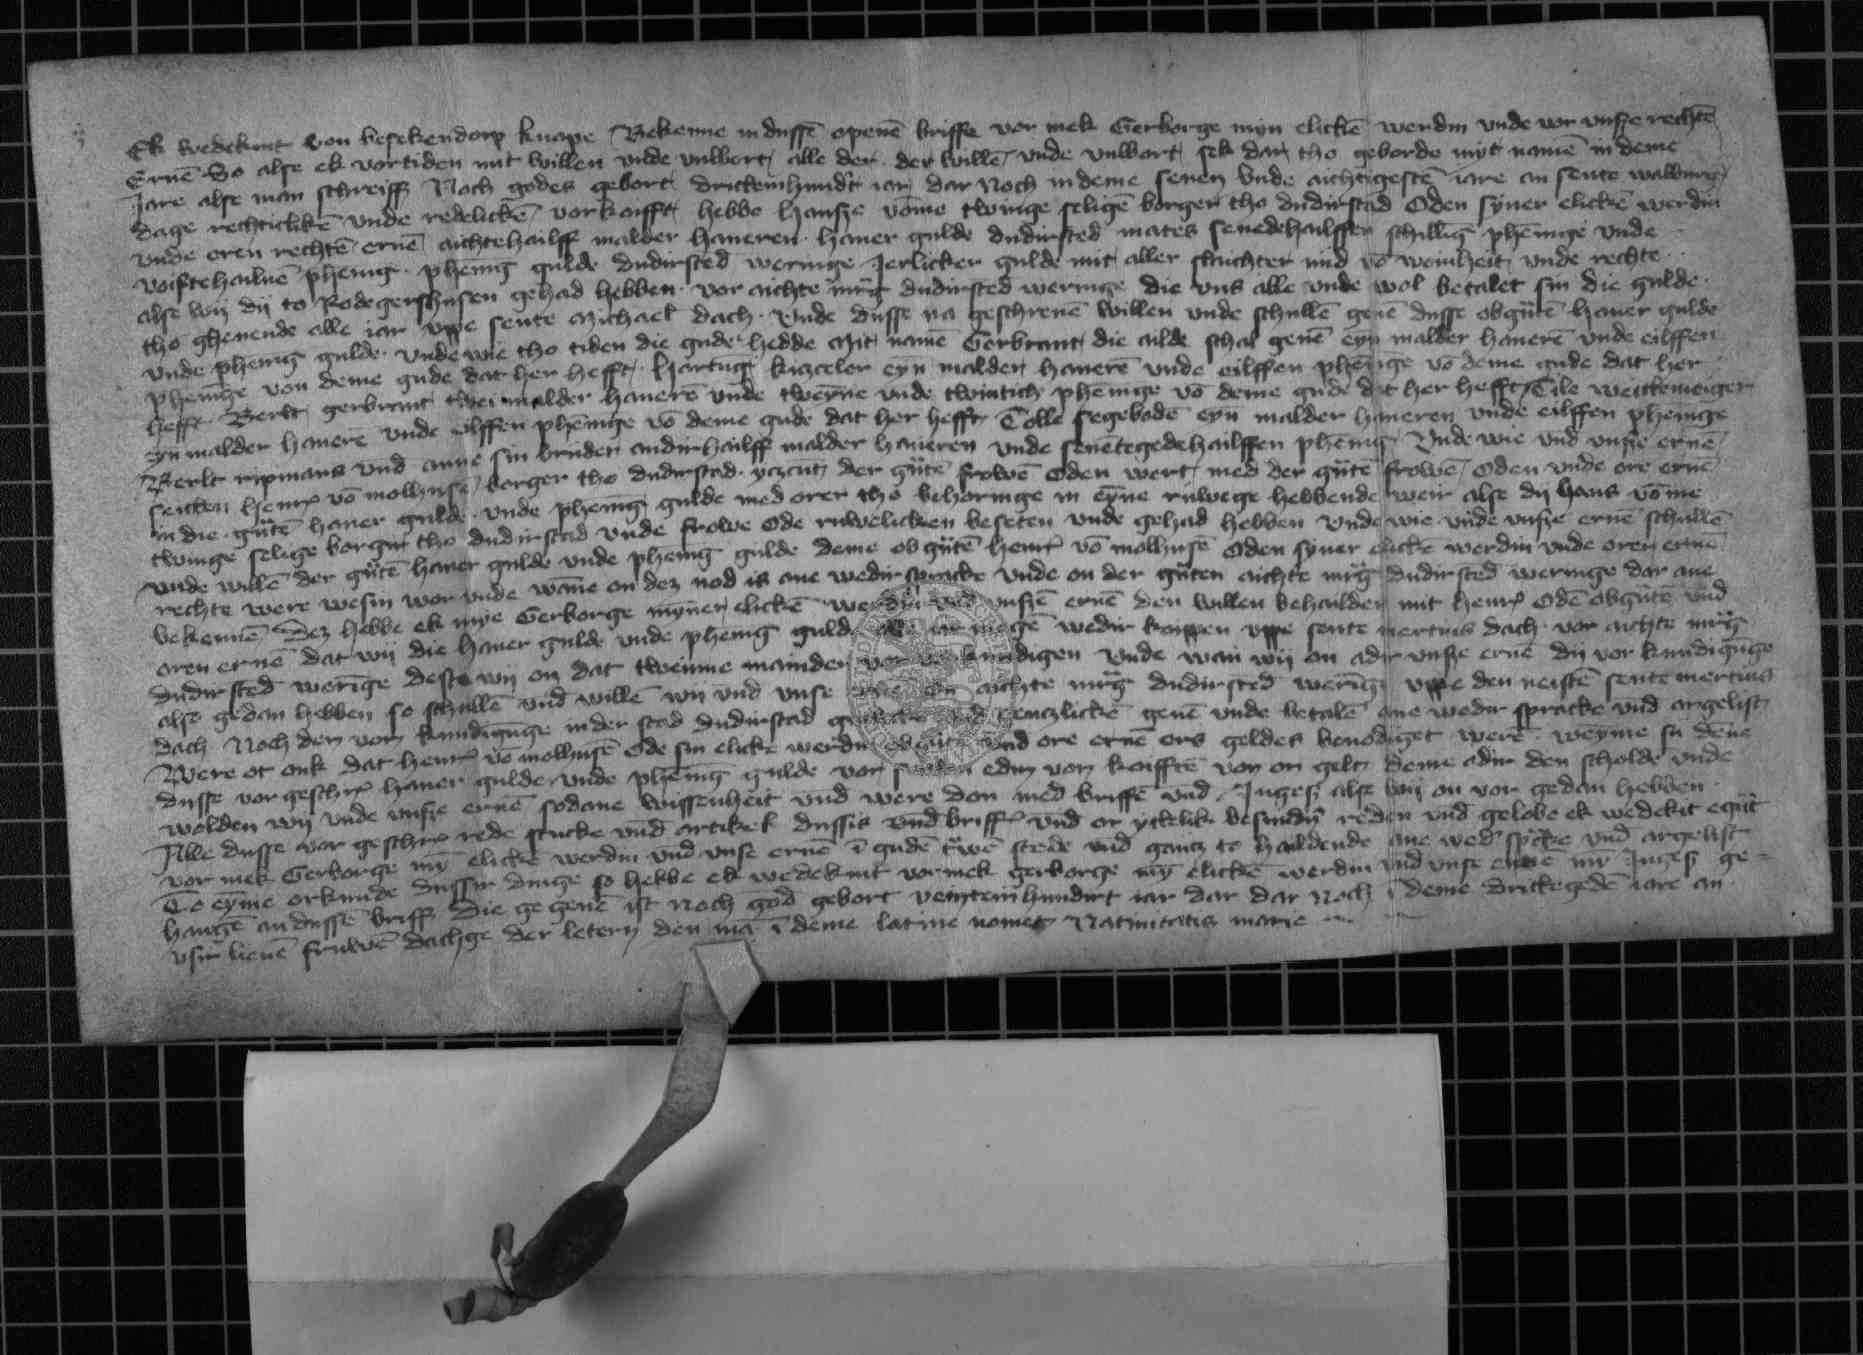 Ek wedekint von besekendorp knape Bekenne in dussē openē briffe vor mek Gerborge myn elickē werdin unde vor unsze rechtē
Ernē So alse ek vortiden mit willen unde vulbort alle der der willē unde vulbort sek dar tho geborde myt namē in deme
Jare alse man schreiff Noch godes gebort dritteinhundt iar dar Noch in deme seuen unde aichtigestē iare an sente walburg
dage rechticlikē unde redelickē vorkoufft hebbe hansze vōme twinge seligē borger tho dudirstad Oden syner elickē werdin
unde oren rechtē ernē aichtehailff malder haueren hauer gulde dudirsted mates seuedehailffen schillīg phēnige unde
voifftehailuē phenig phēnig gulde dudirsted weringe Jerlicker gulde mit aller slachter nud vō wonheit unde rechte
alse wij dij to Rodegershusen gehad hebben vor aichte mrg dudirsted weringe die uns alle unde wol betalet sin die gulde
tho gheuende alle iar uppe sente Michael dach Unde dusse na geschreuē willen unde schullē geuē dusse obgūtē hauer gulde
unde phenig gulde unde wie tho tiden die gude hedde Mit namē Gerbrant die ailde schal geuē eyn malder hauerē unde eilffen
phenige von deme gude dat her hefft Hartūg kiczeler eyn malder hauerē unde eilffen phēnige vō deme gude dat her
hefft Berlt gerbrant twei malder hauerē unde twēne unde twintich phēnige vō deme gude dat her hefft Tile
eyn malder hauerē unde eilffen phēnige vō deme gude dat her hefft Tolle segebodē eyn malder haueren unde eilffen phenige
Berlt ripmans und anne sin bruder andirhailff malder haueren unde seuētegedehailffen phenig Unde wie und unsze ernē
setten Henr vō molhusē borger tho dudirstad yczcut der gūtē frowē Oden wert med der gūtē frowē Oden unde ore ernē
in die gūtē hauer gulde unde phenig gulde med orer tho behoringe in eyne ruwege hebbende weir alse dij Hans vōme
twinge selige borger tho dudirstad unde frowe Ode ruwelicken beseten unde gehad hebben Unde wie unde unsze ernē schullē
unde willē der gūtē hauer gulde unde phenig gulde deme obgūtē Henr vō molhusē Oden syner elickē werdin unde oren ernē
rechte were wesin wor unde wāne on dez nod is ane wedir spracke Unde on der gūten aichte mrg dudirsted weringe dar ane
bekennē Dez hebbe ek mye Gerborge myner elickē werdin und unszē ernē den willen behailden mit Henr Odē obgūtē und
oren ernē dat wij die hauer gulde unde phenig gulde alle iar mogē wedir koupen uppe sente mertins dach vor aichte mrg
dudirsted werīge deste wij on dat tweinne mainden vor vorkundigen Unde wan wij on adir unsze ernē dij vor kundigūge
alse gedan hebben so schullē und willē wij und unse ernē on aichte mrg dudirsted werīg uppe den neistē sente mertins
dach Noch der vor kundigūge in der stad dudirstad und genczlickē geuē unde betalē ane wedir spracke und argelist
Were ot ouk dat Henr vō molhusē Ode sin elicke werdin obgūtē und ore ernē ors geldes benodiget werē weyme su dēne
dusse vor geschr hauer gulde unde phēnig gulde vor vor koufftē vor on gelt deme adir den scholde unde
wolden wij unde unsze ernē sodane wissenheit und were don med briffē und Inges alse wij on vor gedan hebben
Alle dusse vor geschr rede stucke und artikel dussis und briff und or yckelik besundn reden und gelobe ek wedekīt egūt
vor mek Gerborge my elickē werdin und unse ernē ī gudē trwē stede und gancz to haildende ane wed spcke und argelist
To eyme orkunde dussir dinge so hebbe ek wedekint vor mek gerborge my elickē werdin und unse ernē my Inges ge-
hangē an dussē briff Die gegeuē ist noch god gebort veirteinhundirt iar dar dar Noch ī deme drittegedē iare an
usir lieuē fruwē dachge der letern den mā ī deme latine nomet Natiuitatis marie